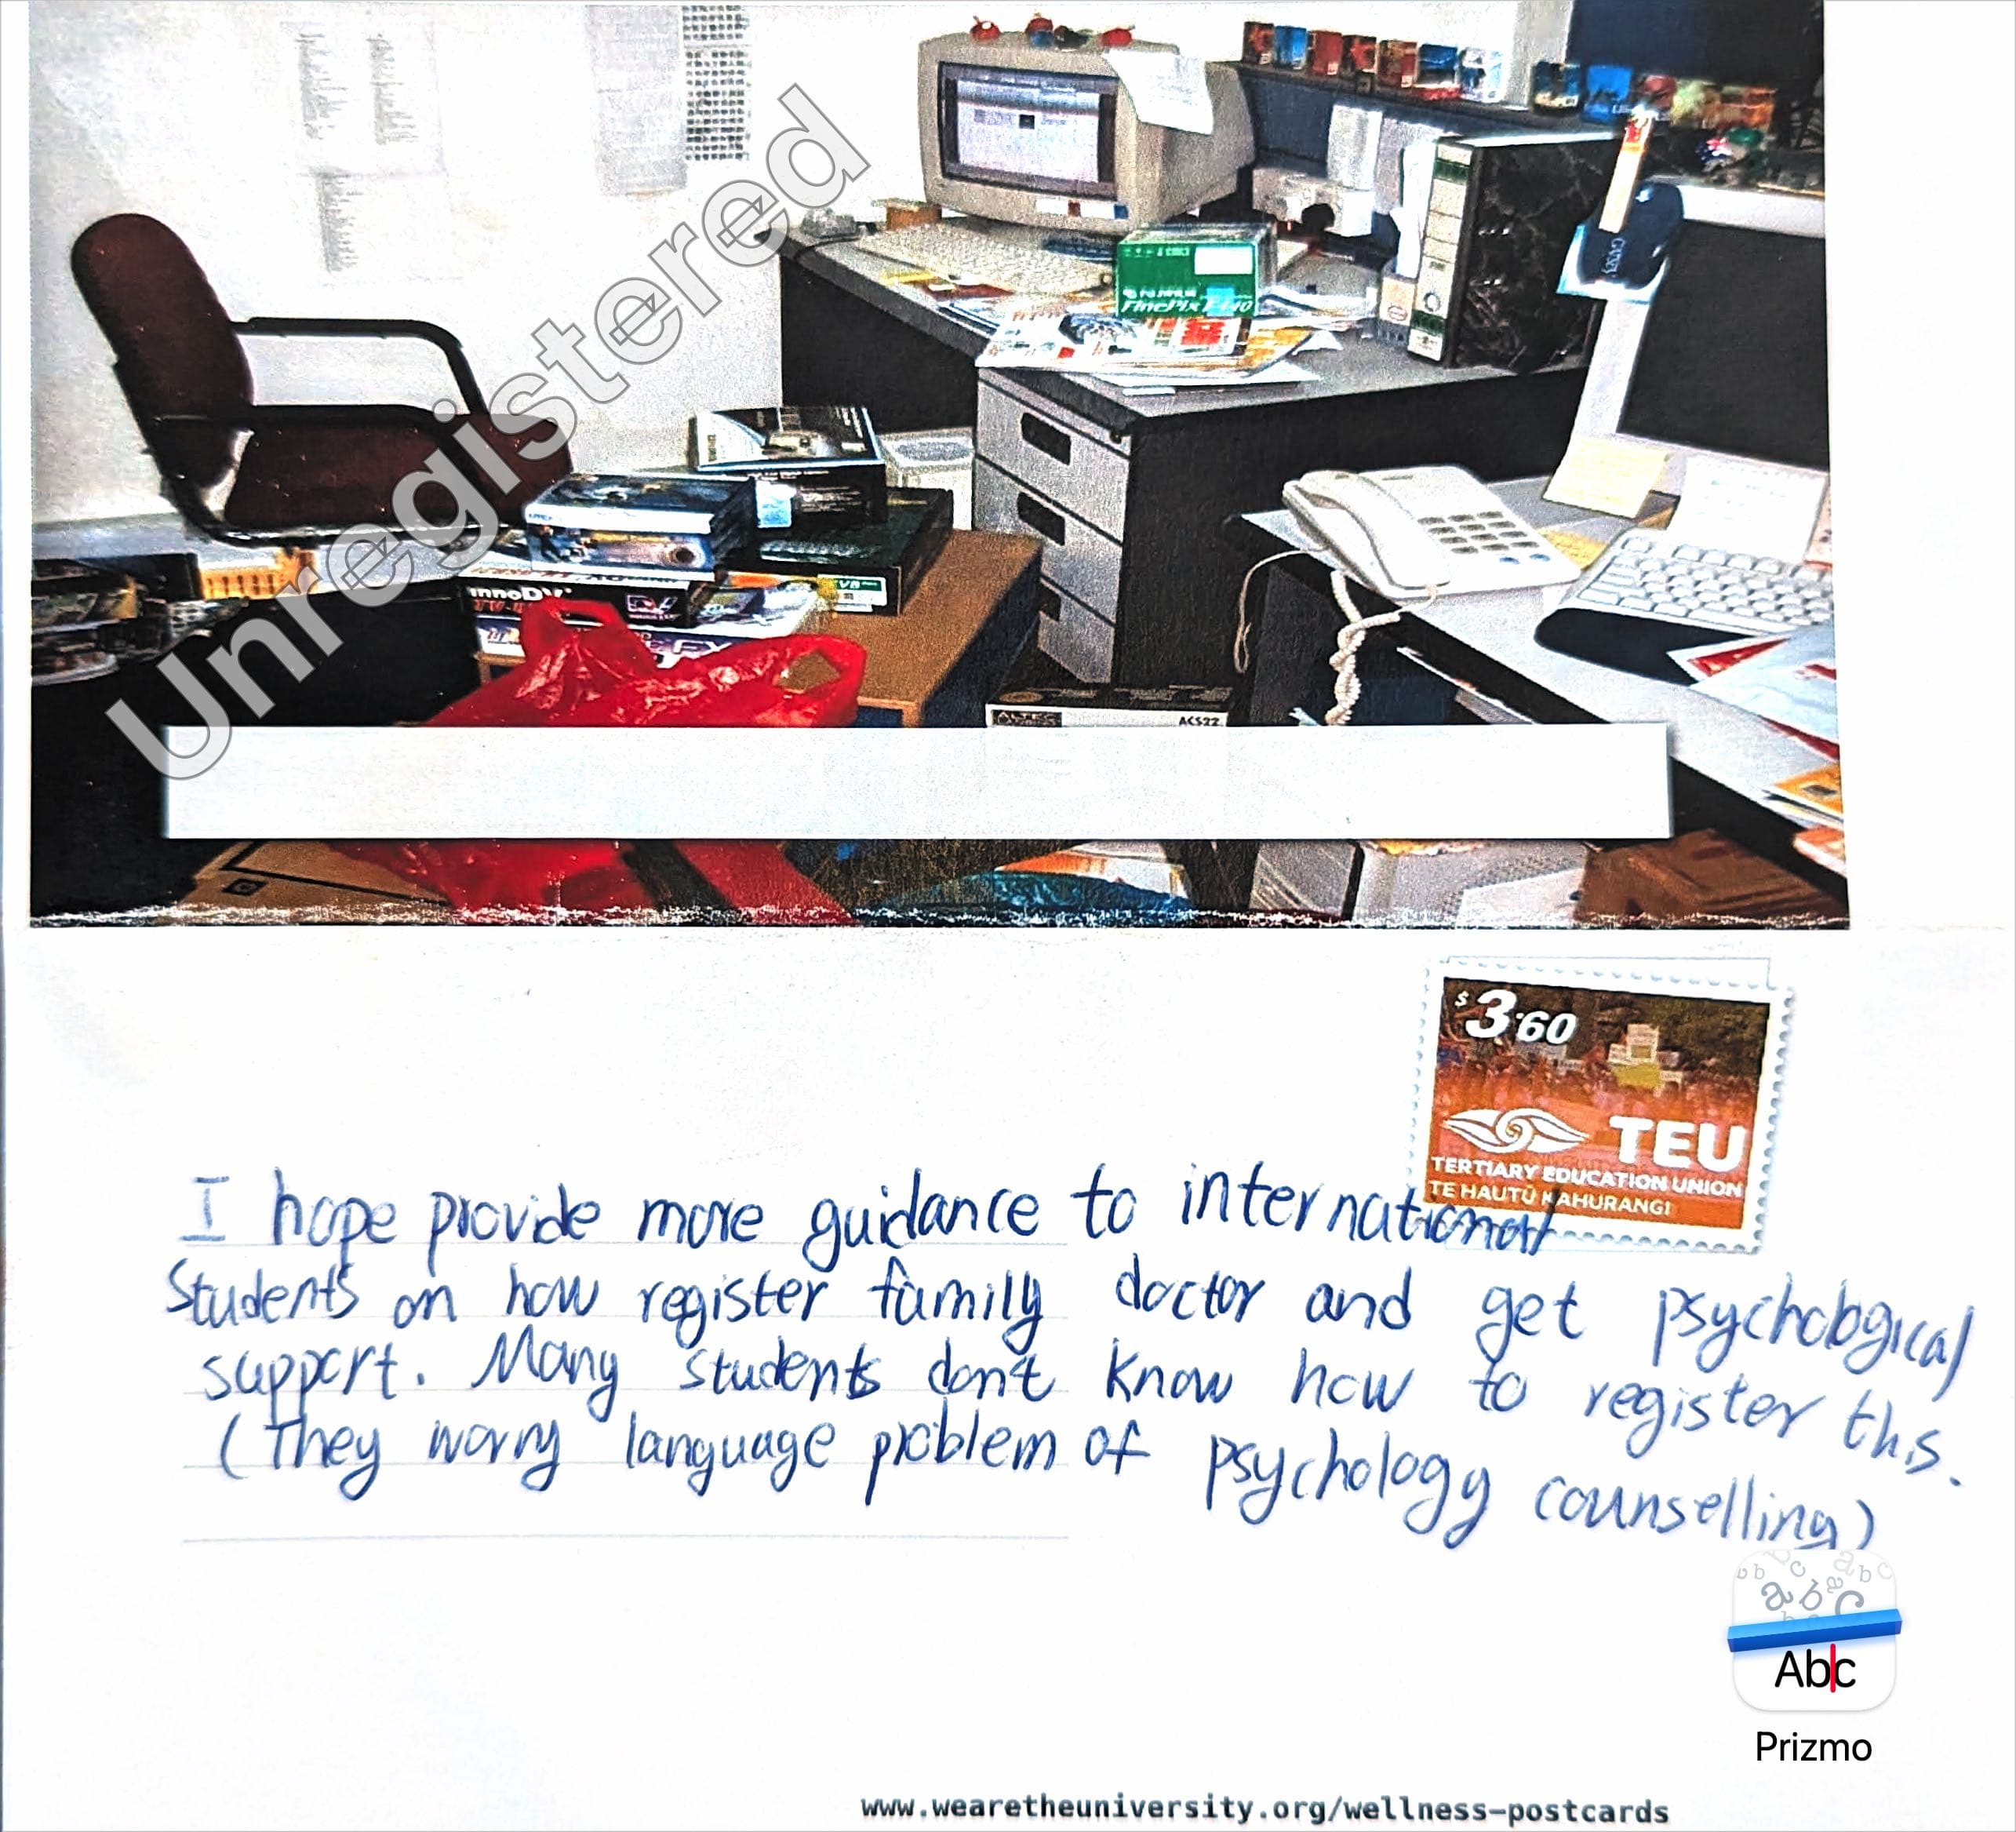 Unregistered
FinePix
innoDV
ACS22
$3.60
TEU
TERTIARY EDUCATION UNION
TE HAUTŪ KAHURANGI
I hope provide more guidance to international
Students on how register family doctor and get psychological
support. Many students don't know how to register this.
(They worry language problem of psychology counselling)
Abc
Prizmo
www.wearetheuniversity.org/wellness-postcards